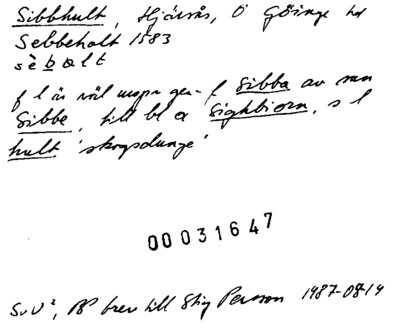 Sibbhult, Hjärsås, Ö Göinge hd
Sebbeholt 1583
sèbalt
f l är väl urspr gen. f Sibba av mn
Sibbe, till bl a Sighbiorn, s l
hult 'skogsdunge'
00031647
SvU², brev till Stig Persson 1987-08-14